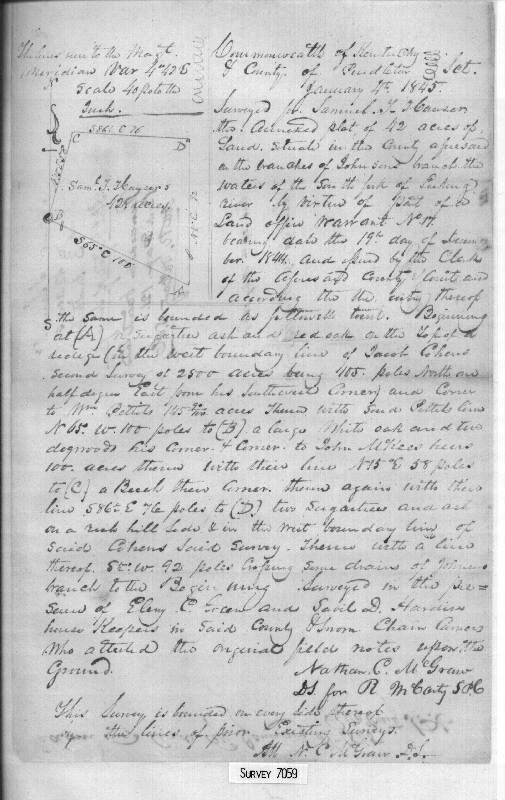 The lines run to the Magt.
Meridian Var 4° 42 E
Scale 40 po to the
Inch.
S 86° E 76
C
D
Sam. T. Hauser's
42 acres
B
S 65° E 100
A
Commonwealth of Kentucky
& County of Pendleton Sct.
January 4th 1845.
Surveyed for Samuel T Hauser
the annexed plat of 42 acres of
Land. Situate in the County aforesaid
on the branches of Johnsons branch the
waters of the South fork of Licking
river by virtue of part of a
Land office Warrant No 17.
bearing date the 19th day of Decem
ber 1844. and issued by the Clerk
of the Aforesaid County Court and
according the the entry thereof
the same is bounded as followeth towit. Beginning
at (A) a Sugartree ash and red oak on the top of a
ridge (in the west boundary line of Jacob Cohens
Second Survey of 2500 acres being 405 poles North one
half degree East from his Southwest Corner) and Corner
to Wm Pettits acres Thence with Said Pettits line
N 65° W. 100 poles to (B) a large White oak and two
dogwoods his Corner. & Corner to John McKees heirs
100 acres thence with their line N 15° E 58 poles
to (C) a Beech their Corner. thence again with their
line S 86° E 76 poles to (D) two Sugartrees and ash
on a rich hill Side & in the West boundary line of
Said Cohens Said Survey. Thence with a line
thereof. W 92 poles Crossing Some drains of Johnsons
branch to the Beginning Surveyed in the pre=
sence of C. Green and D. Hardin
house Keepers in Said County & Sworn Chain Carriers
Who attended the original field notes upon the
Ground.
Nathan. C. McGraw
DS for R McCarty SPC
This Survey is bounded on every Side thereof
by the lines of prior Existing Surveys.
Att N. C McGraw D.S.
SURVEY 7059